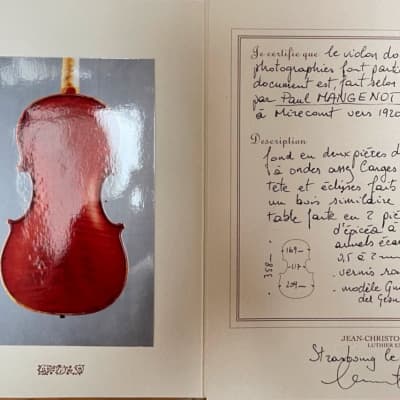 Je certifie que le violon do
photographies font parti
document est, fait selon
par Paul MANGENOT
à Mirecourt vers 1920
Description
fond en deux pièces d
à ondes assez larges
tête et éclisses faits
un bois similaire
table faite en 2 piè
d'épicéa à
annels éca
0,5 à 2 mm
169
117
209
358
- vernis rou
- modèle Gua
del Gesu
JEAN-CHRISTO
LUTHIER E
Strasbourg le